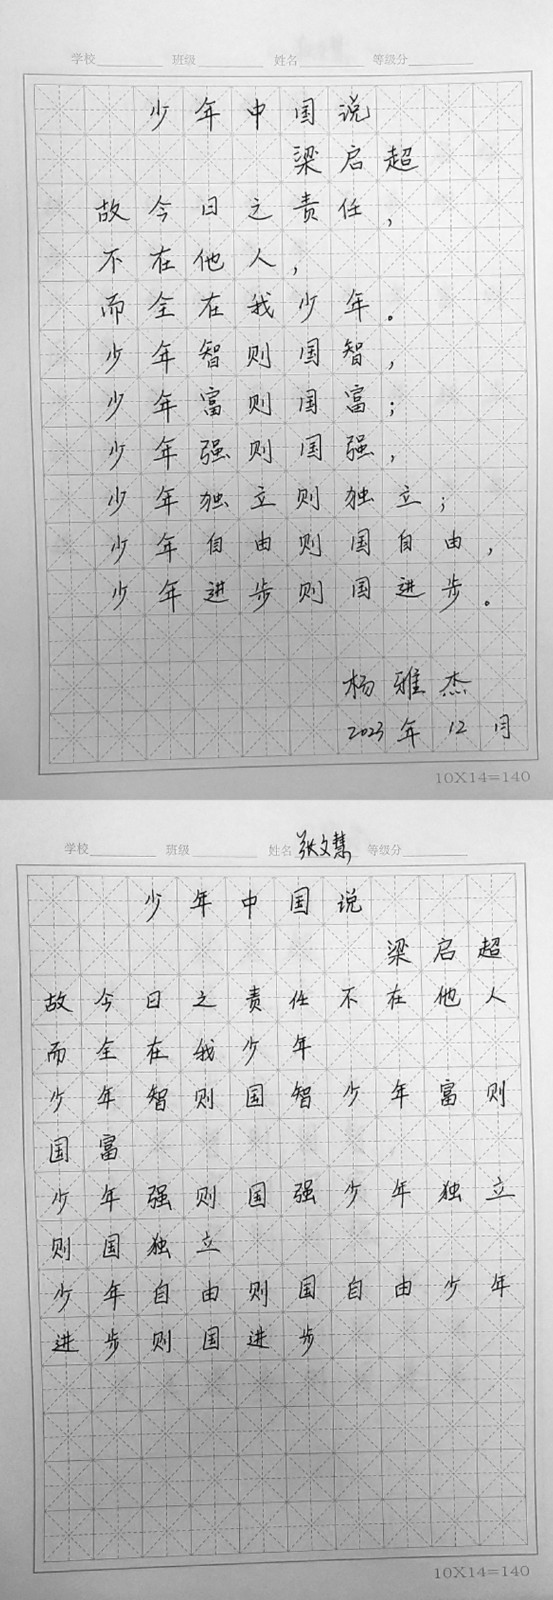 学校 班级 姓名 等级分
少年中国说
梁启超
故今日之责任，
不在他人，
而全在我少年。
少年智则国智，
少年富则国富；
少年强则国强，
少年独立则独立；
少年自由则国自由，
少年进步则国进步。
杨雅杰
2023年12月
10X14=140
学校 班级 姓名 张文慧 等级分
少年中国说
梁启超
故今日之责任不在他人
而全在我少年
少年智则国智少年富则
国富
少年强则国强少年独立
则国独立
少年自由则国自由少年
进步则国进步
10X14=140